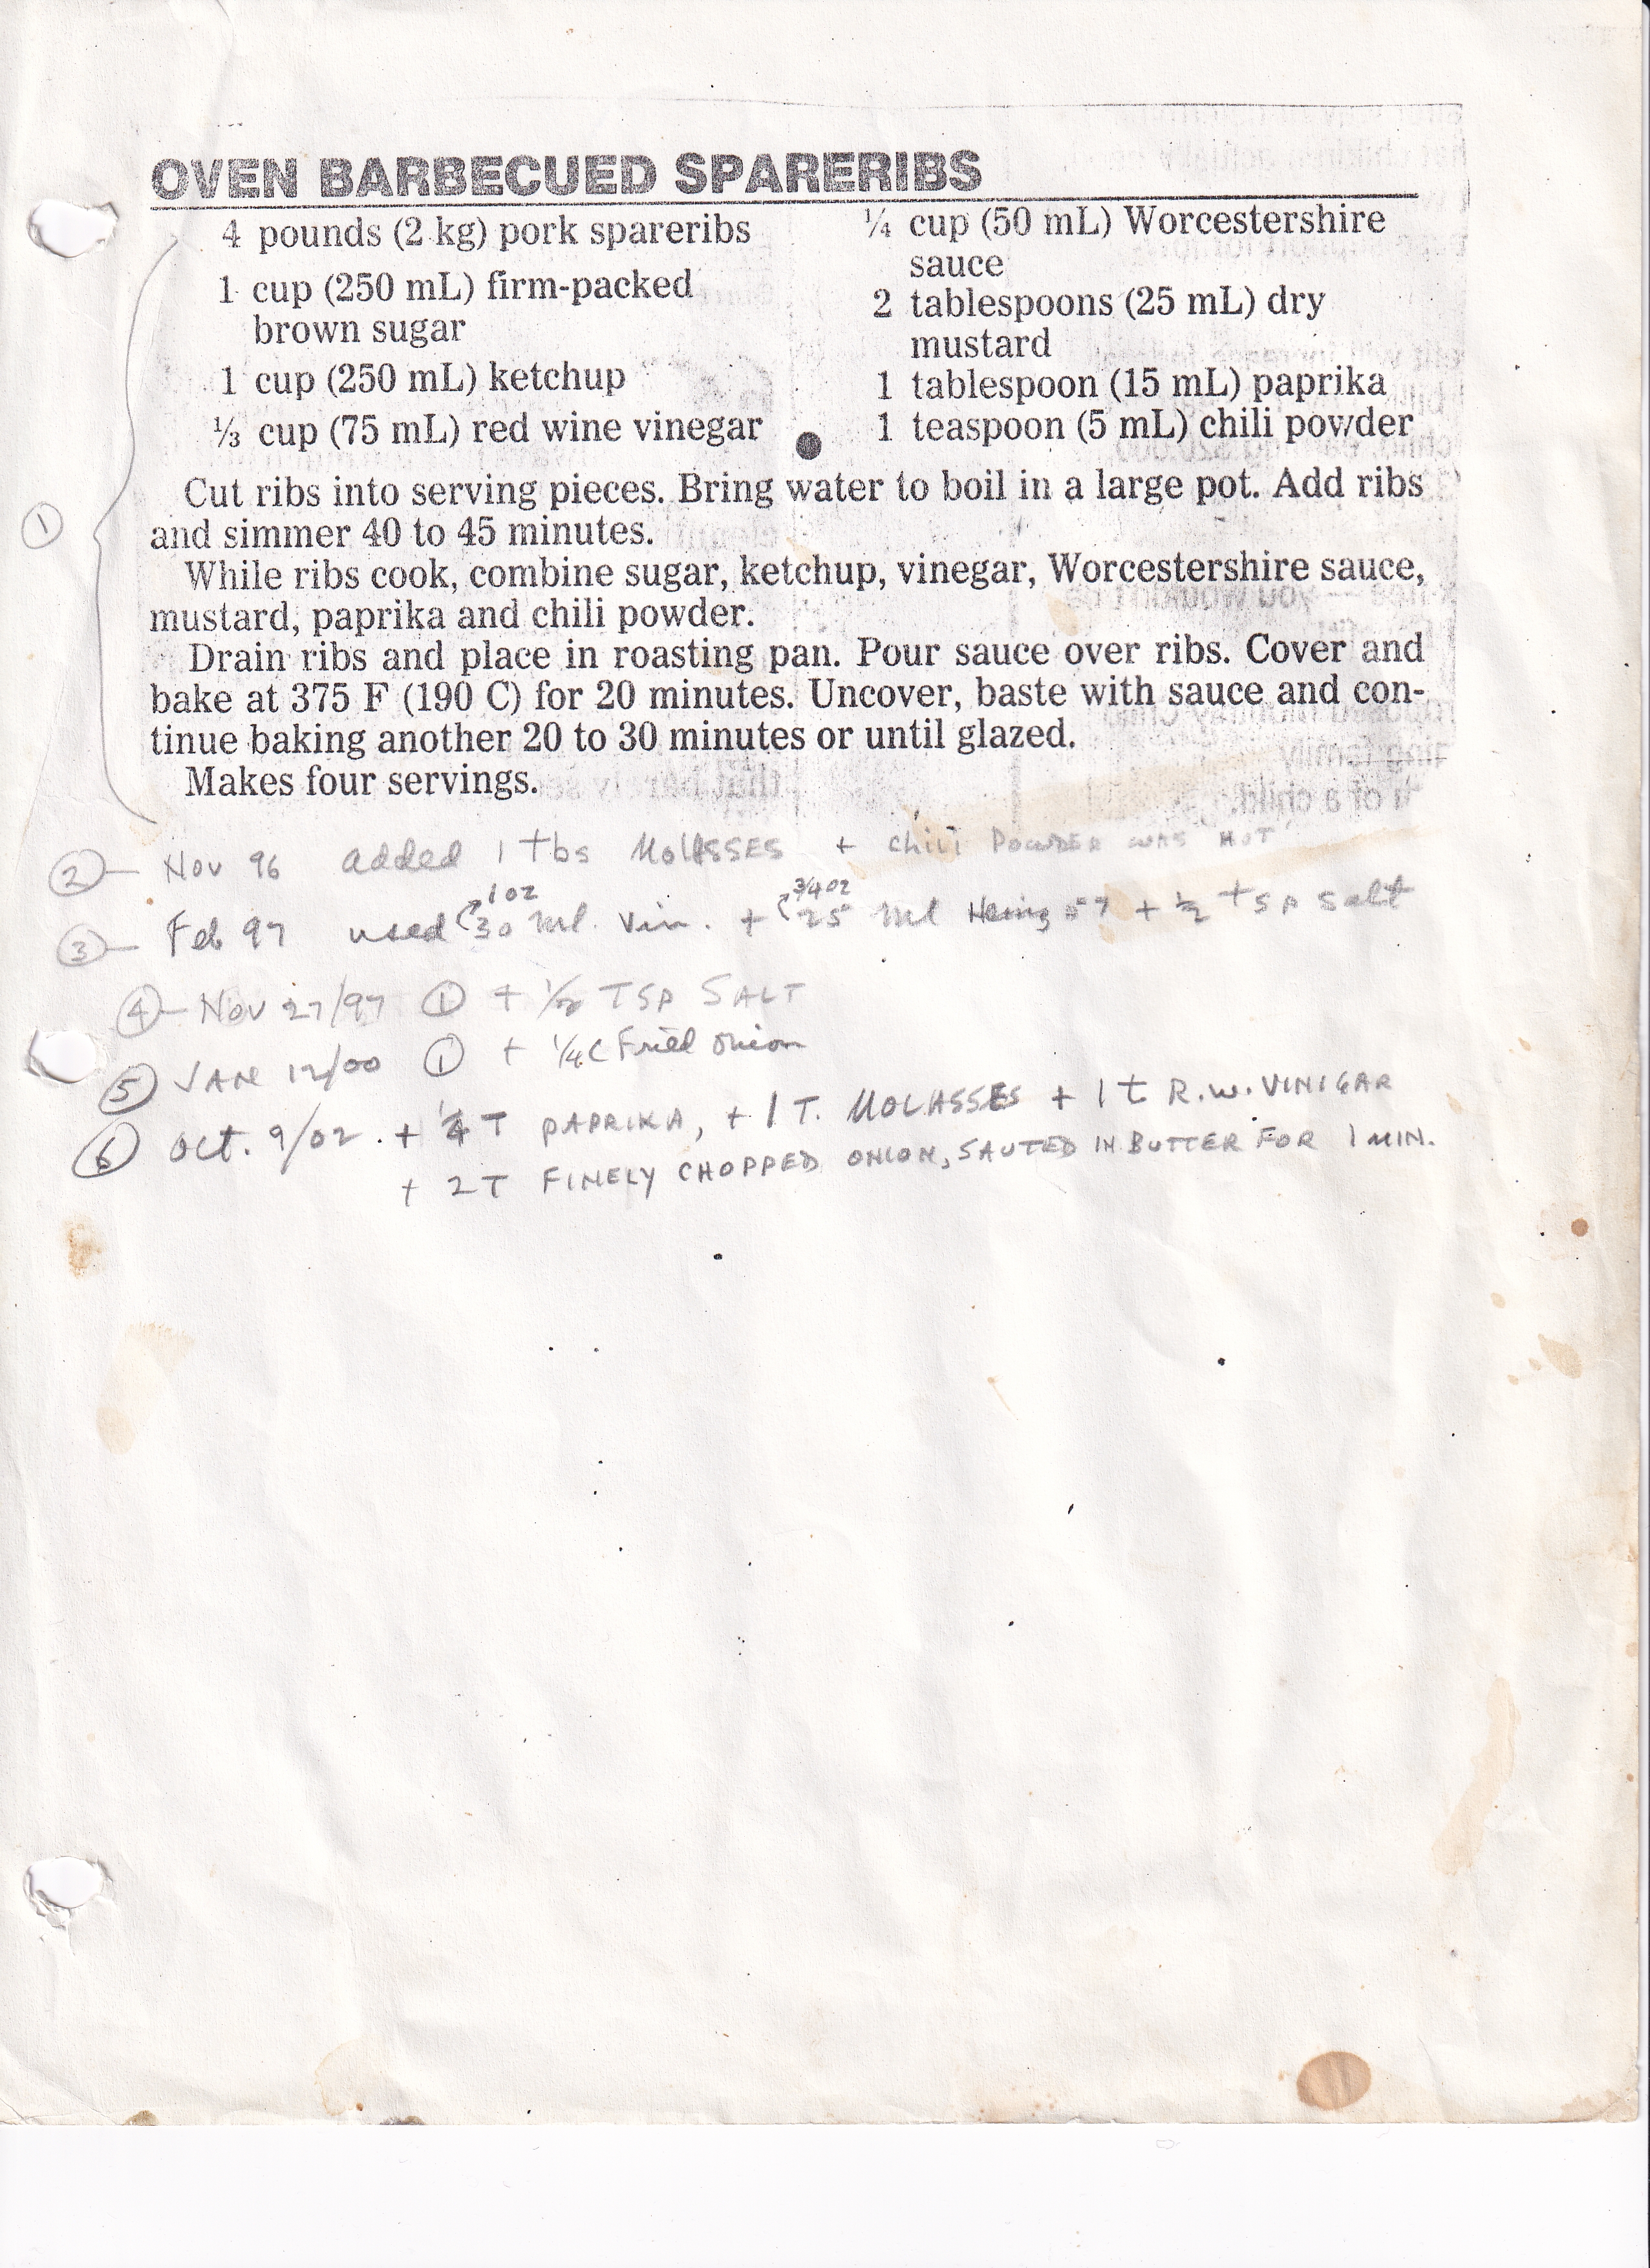 OVEN BARBECUED SPARERIBS
4 pounds (2 kg) pork spareribs
1 cup (250 mL) firm-packed
brown sugar
1 cup (250 mL) ketchup
⅓ cup (75 mL) red wine vinegar
¼ cup (50 mL) Worcestershire
sauce
2 tablespoons (25 mL) dry
mustard
1 tablespoon (15 mL) paprika
1 teaspoon (5 mL) chili powder
Cut ribs into serving pieces. Bring water to boil in a large pot. Add ribs
and simmer 40 to 45 minutes.
While ribs cook, combine sugar, ketchup, vinegar, Worcestershire sauce,
mustard, paprika and chili powder.
Drain ribs and place in roasting pan. Pour sauce over ribs. Cover and
bake at 375 F (190 C) for 20 minutes. Uncover, baste with sauce and con-
tinue baking another 20 to 30 minutes or until glazed.
Makes four servings.
①
② — Nov 96 added 1 tbs MOLASSES + chili POWDER WAS HOT
1 oz 3/4 oz
③ — Feb 97 used 30 ml. Vin. + 25 ml Heinz 57 + ½ tsp salt
④ — Nov 27/97 ① + ½ TSP SALT
⑤ JAN 12/00 ① + ¼ C Fried onion
⑥ Oct. 9/02 . + ¼ T PAPRIKA, + 1 T. MOLASSES + 1 t R.W. VINIGAR
+ 2 T FINELY CHOPPED ONION, SAUTED IN BUTTER FOR 1 MIN.